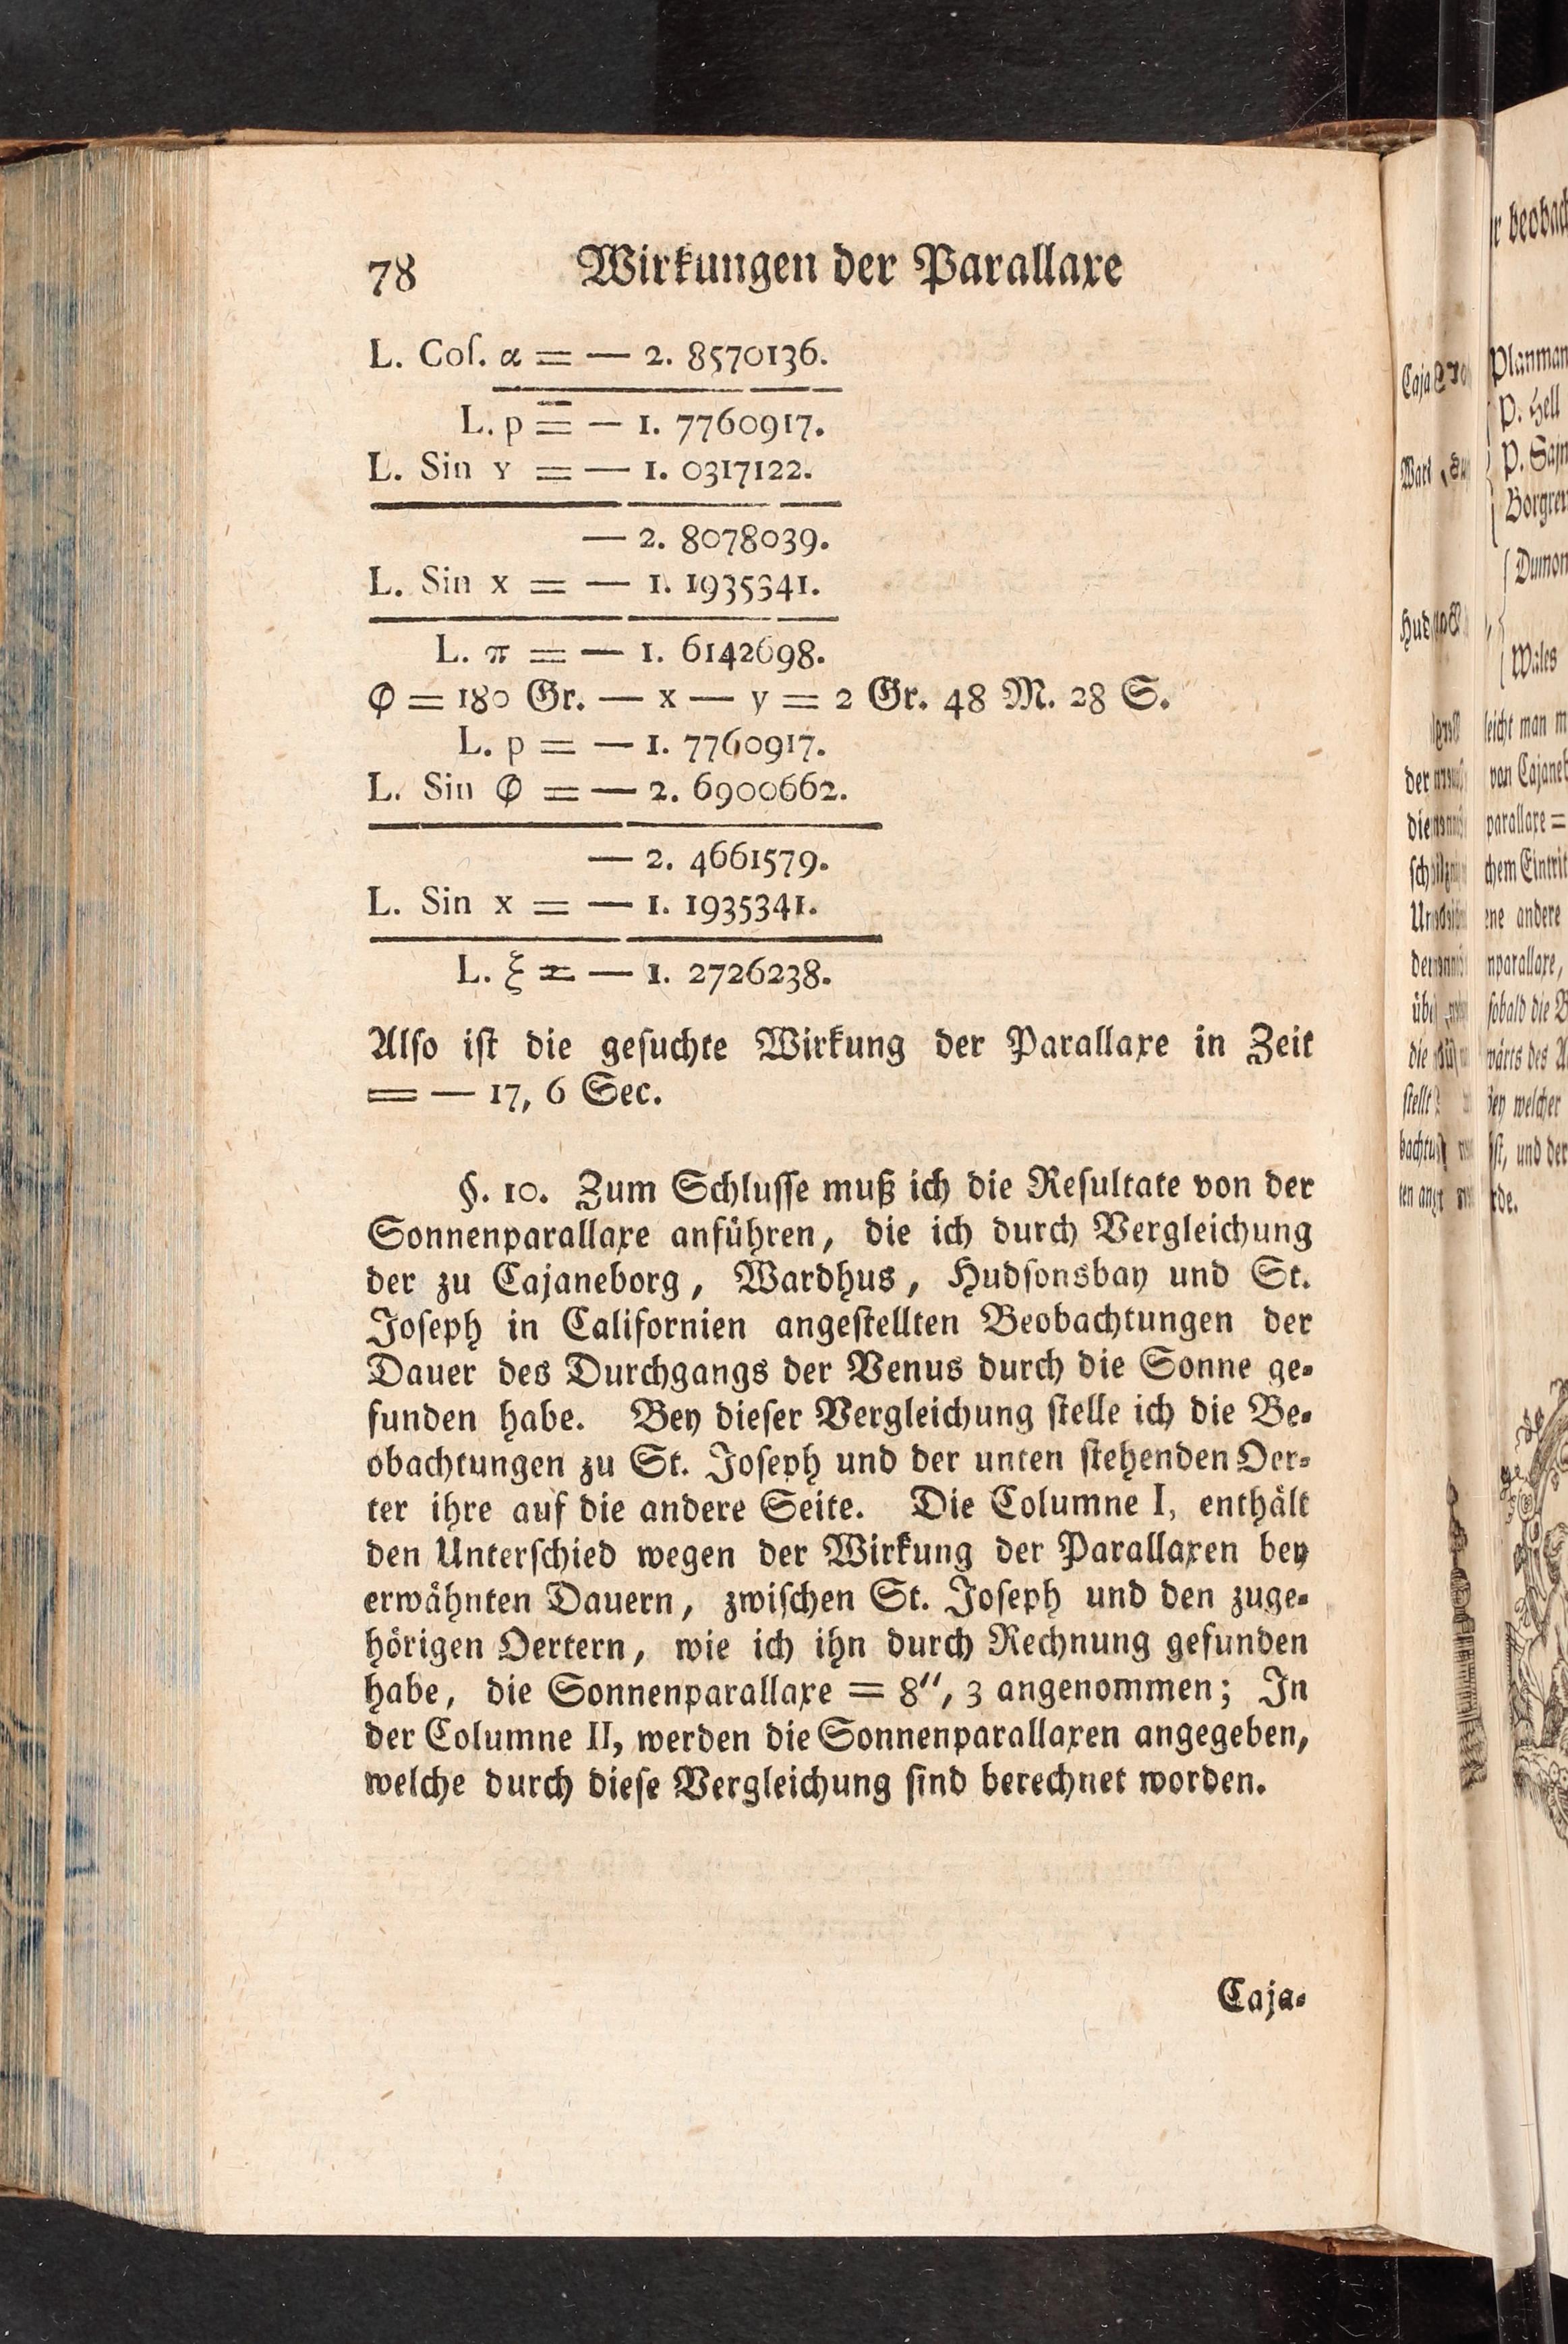 78 Wirkungen der Parallaxe
L. Coſ. α = — 2. 8570136.
L. p = — 1. 7760917.
L. Sin Y = — 1. 0317122.
— 2. 8078039.
L. Sin x = — 1. 1935341.
L. π = — 1. 6142698.
Φ = 180 Gr. — x — y = 2 Gr. 48 M. 28 S.
L. p = — 1. 7760917.
L. Sin Φ = — 2. 6900662.
— 2. 4661579.
L. Sin x = — 1. 1935341.
L. ξ = — 1. 2726238.
Alſo iſt die geſuchte Wirkung der Parallaxe in Zeit
= — 17, 6 Sec.
§. 10. Zum Schluſſe muß ich die Reſultate von der
Sonnenparallaxe anführen, die ich durch Vergleichung
der zu Cajaneborg, Wardhus, Hudſonsbay und St.
Joſeph in Californien angeſtellten Beobachtungen der
Dauer des Durchgangs der Venus durch die Sonne ge⸗
funden habe. Bey dieſer Vergleichung ſtelle ich die Be⸗
obachtungen zu St. Joſeph und der unten ſtehenden Oer⸗
ter ihre auf die andere Seite. Die Columne I, enthält
den Unterſchied wegen der Wirkung der Parallaxen bey
erwähnten Dauern, zwiſchen St. Joſeph und den zuge⸗
hörigen Oertern, wie ich ihn durch Rechnung gefunden
habe, die Sonnenparallaxe = 8″, 3 angenommen; In
der Columne II, werden die Sonnenparallaxen angegeben,
welche durch dieſe Vergleichung ſind berechnet worden.
Caja⸗
Planman
P. Hell
Dumon
Wales
leicht man
von
parallaxe =
andere
ſobald die
welcher
und der